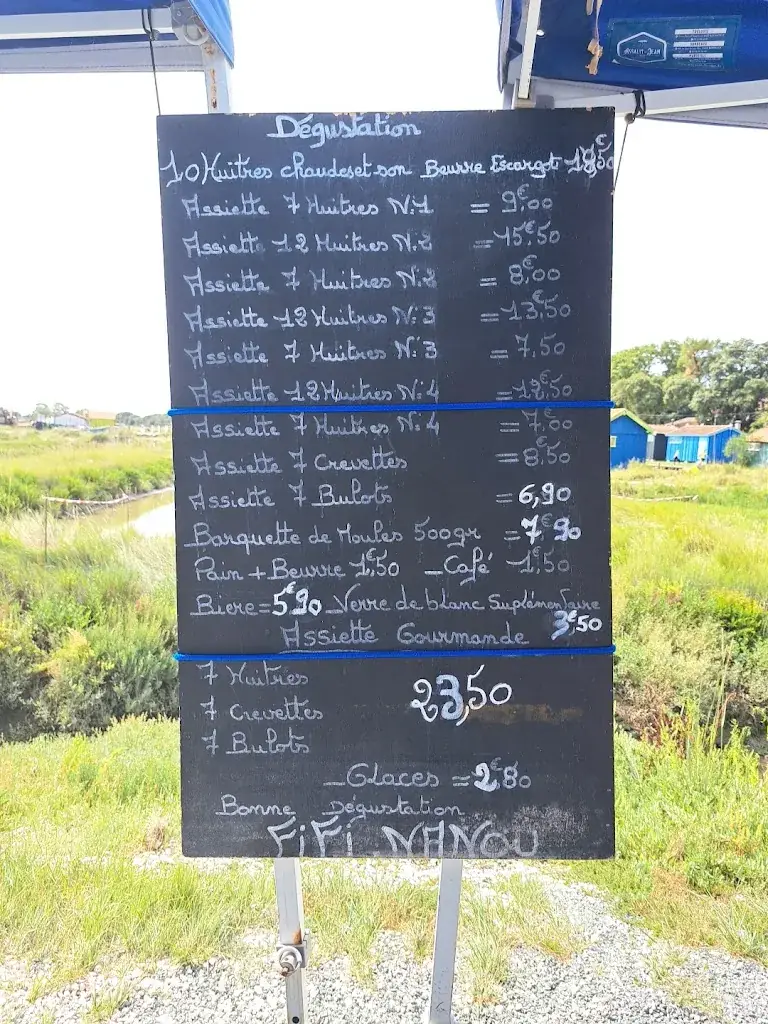 Dégustation
10 Huîtres chaudes et son Beurre Escargot
Assiette 7 Huîtres N:1 = 9€00
Assiette 12 Huitres N:2 = 15€50
Assiette 7 Huitres N:2 = 8€00
Assiette 12 Huitres N:3 = 13€50
Assiette 7 Huîtres N:3 = 7,50
Assiette 12 Huitres N:4 = 12€50
Assiette 7 Huitres N:4 = 7€00
Assiette 7 Crevettes = 8€50
Assiette 7 Bulots = 6,90
Barquette de Moules 500gr = 7€90
Pain + Beurre 1€50 - Café 1€50
Biere = 5€90 - Verre de blanc Suplémentaire
3€50
Assiette Gourmande
7 Huitres
7 Crevettes
7 Bulots
23,50
- Glaces = 2€80
Bonne Dégustation
FiFi - NANOU